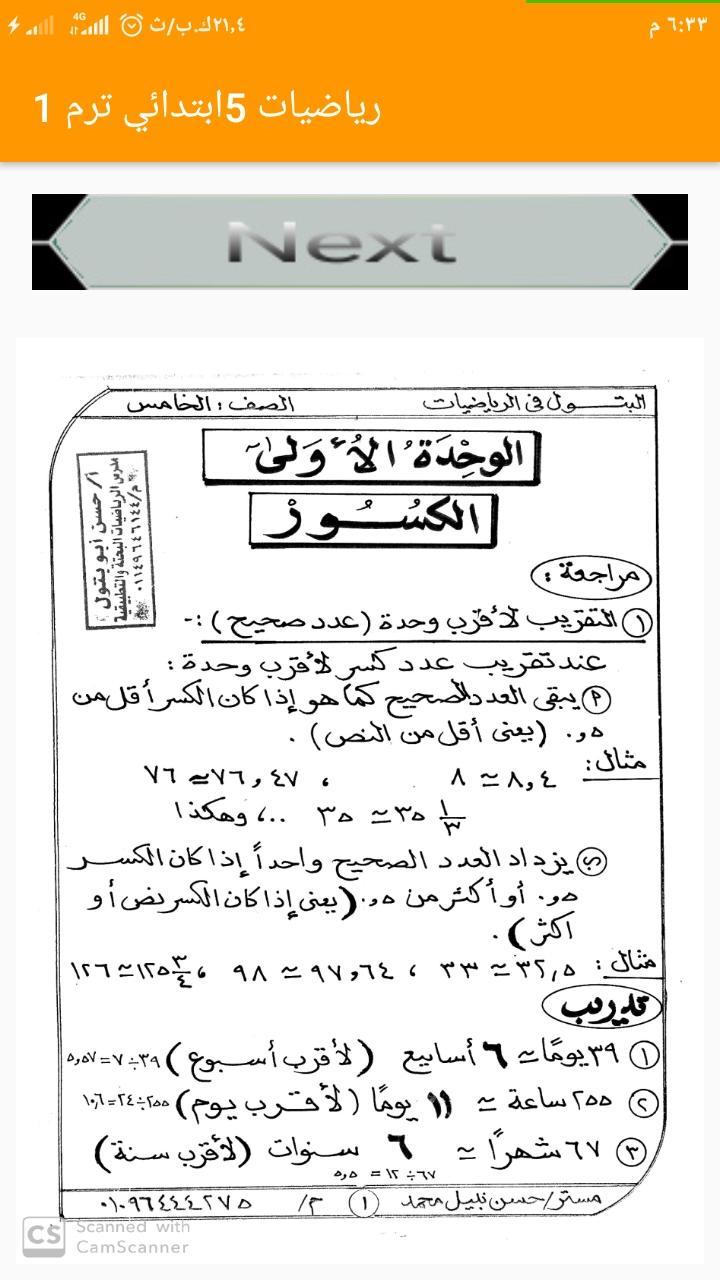 ٢١,٤ك.ب/ث 4G
٦:٣٣ م
رياضيات 5ابتدائي ترم 1
Next
البتــول فى الرياضيات
الصف : الخامس
الوِحْدَةُ الأُولَى
الكُسُــورْ
أ/ حسن أبو بتول
مدرس الرياضيات البحتة والتطبيقية
مراجعة :
١ التقريب لأقرب وحدة (عدد صحيح) :-
عند تقريب عدد كسر لأقرب وحدة :
٢ يبقى العدد الصحيح كما هو إذا كان الكسر أقل من
٠,٥ (يعنى أقل من النص) .
مثال: ٨,٤ ≃ ٨ ، ٧٦,٤٧ ≃ ٧٦
٣٥ ١/٣ ≃ ٣٥ ،.. وهكذا
ب يزداد العدد الصحيح واحداً إذا كان الكسر
٠,٥ أو أكثر من ٠,٥ (يعنى إذا كان الكسر نص أو
اكثر) .
مثال: ٣٢,٥ ≃ ٣٣ ، ٩٧,٦٤ ≃ ٩٨ ، ١٢٥ ٣/٤ ≃ ١٢٦
تدريب
١ ٣٩ يومًا ≃ ٦ أسابيع (لأقرب أسبوع) ٣٩÷٧=٥,٥٧
٢ ٢٥٥ ساعة ≃ ١١ يومًا (لأقرب يوم) ٢٥٥÷٢٤=١٠,٦
٣ ٦٧ شهرًا ≃ ٦ سنوات (لأقرب سنة)
٦٧÷١٢ = ٥,٥
مستر/حسن نبيل محمد ١ م/ ٠١٠٩٦٤٤٤٢٧٥
CS Scanned with
CamScanner